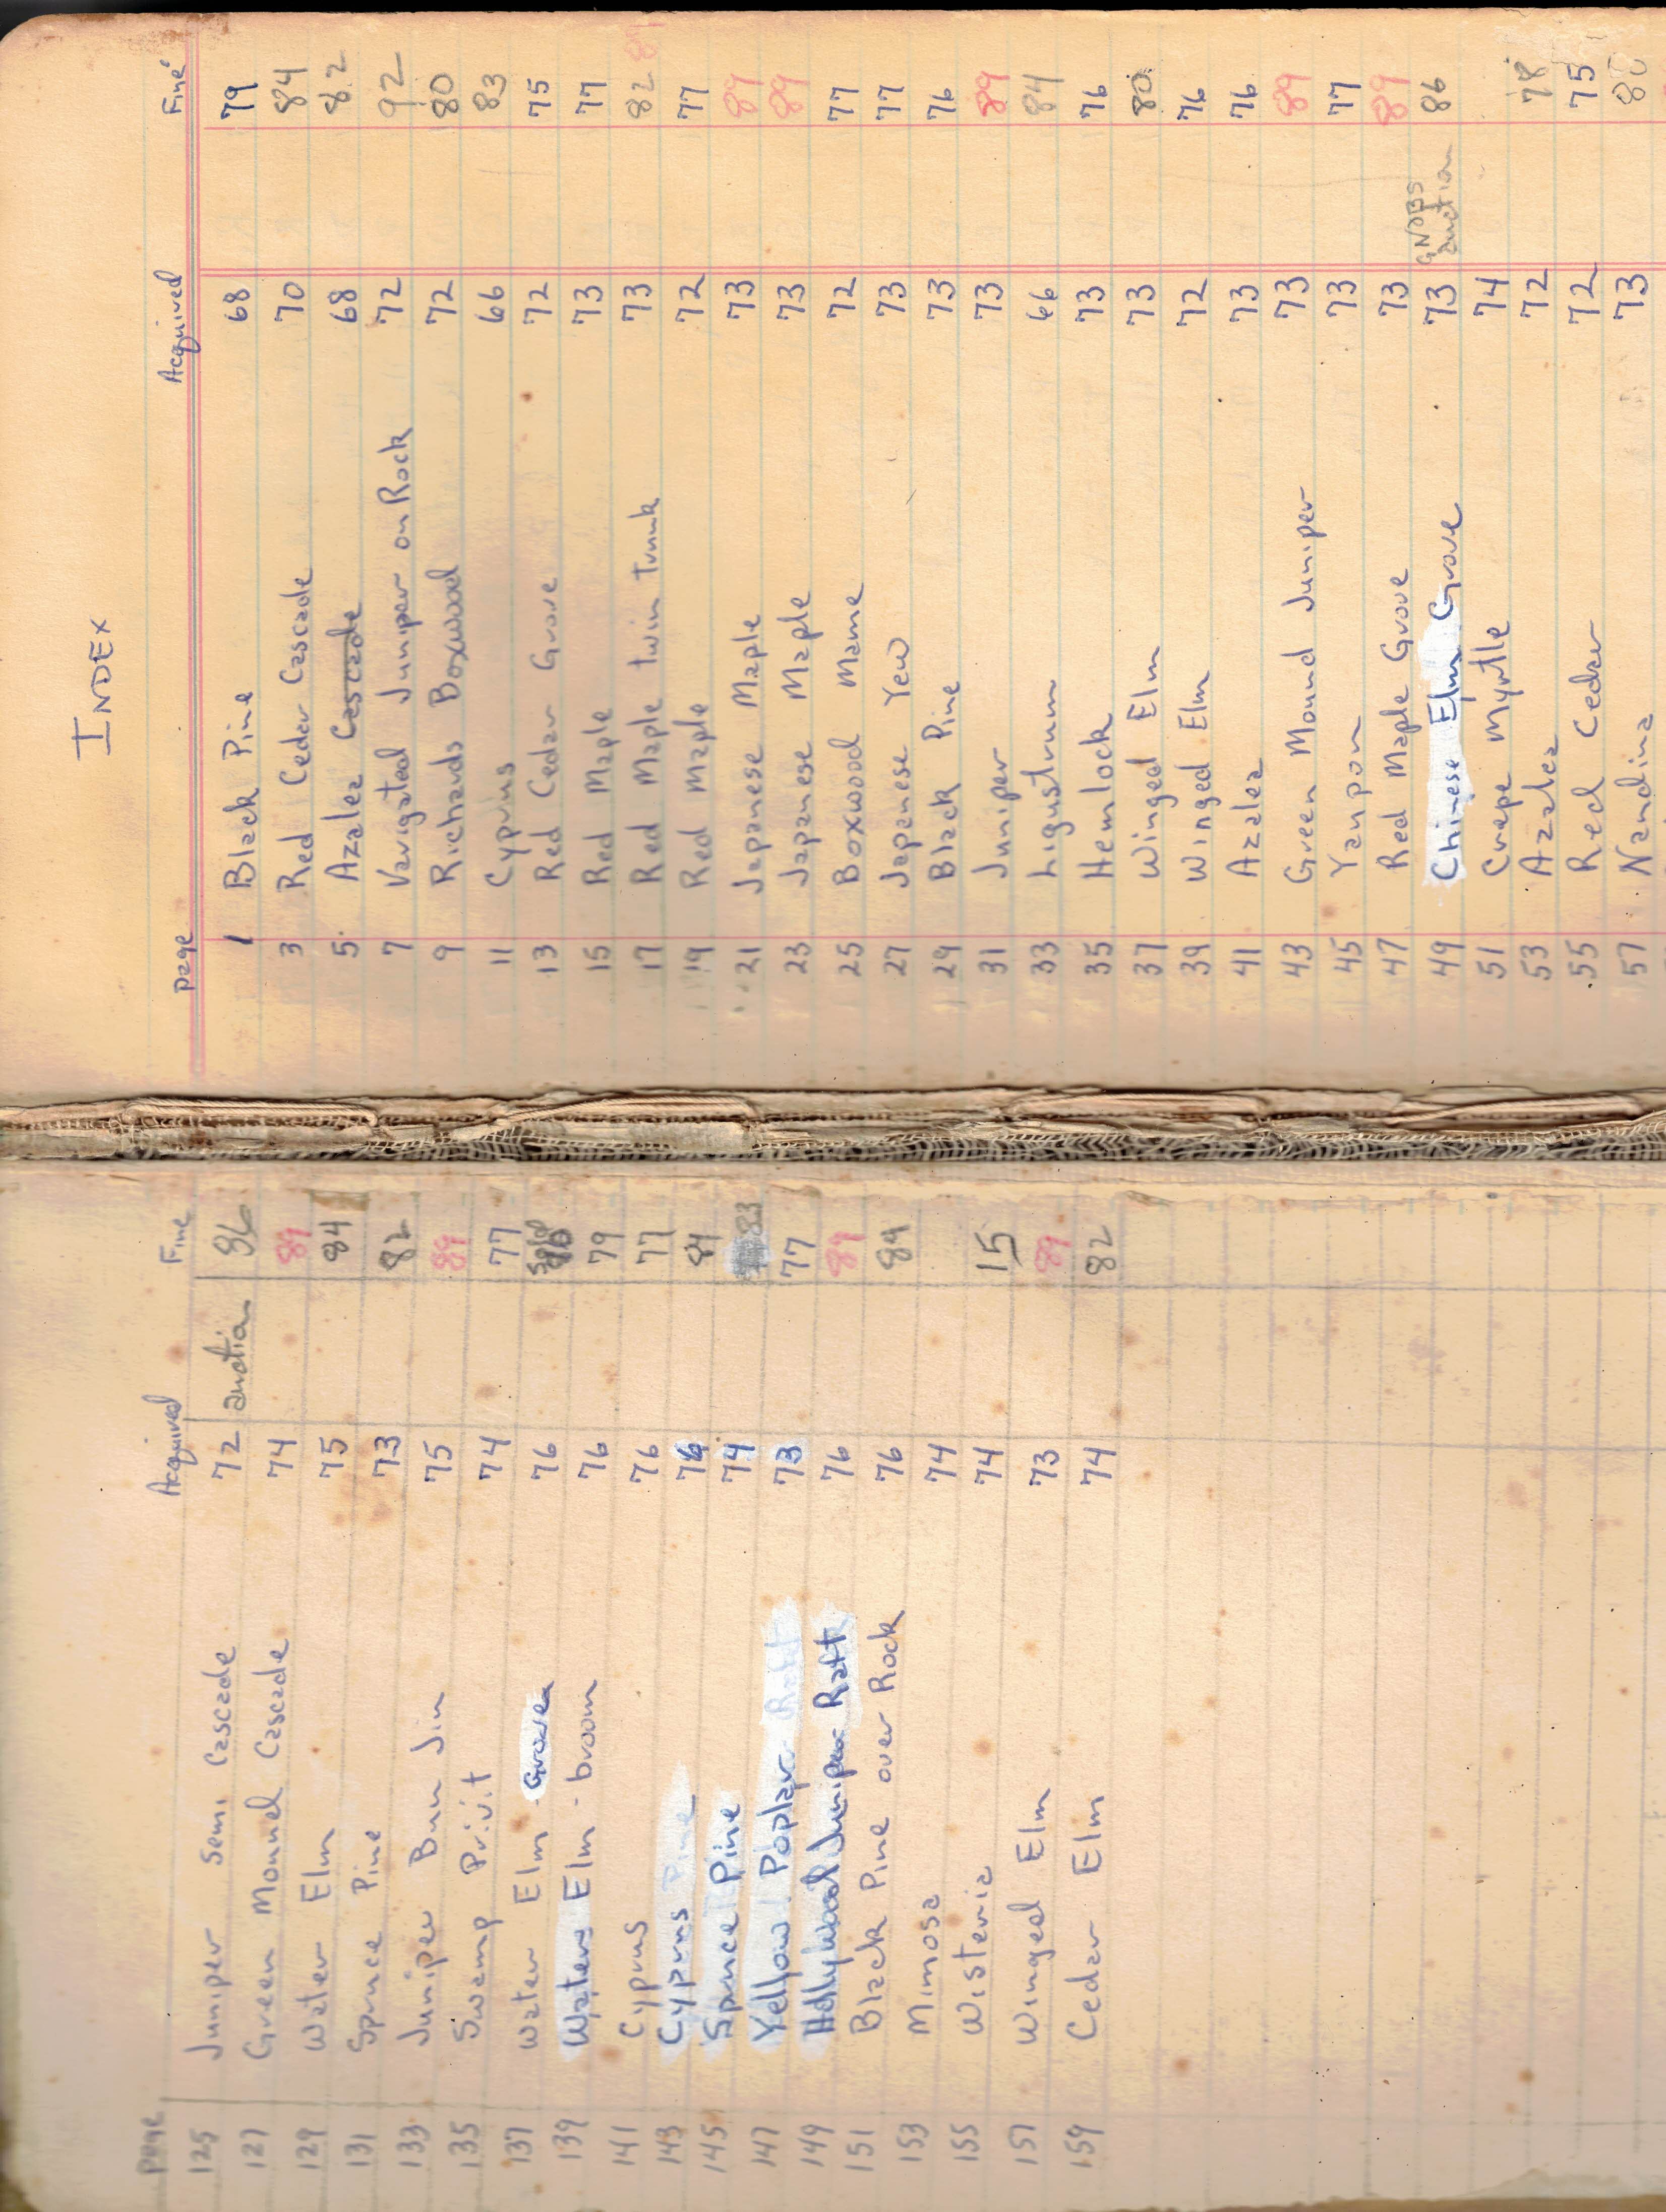 page Acquired Fine
125 Juniper Semi Cascade 72 auction 86
127 Green Mound Cascade 74 89
129 Water Elm 75 84
131 Spruce Pine 73 82
133 Juniper Bun Jin 75 89
135 Swamp Privit 74 77
137 Water Elm - Grove 76 Sold
139 Waters Elm - broom 76 79
141 Cyprus 76 77
143 Cyprus Pine 76 84
145 Spruce Pine 74 83
147 Yellow Poplar Raft 73 77
149 Hollywood Juniper Raft 76 89
151 Black Pine over Rock 76 84
153 Mimosa 74
155 Wisteria 74 15
157 Winged Elm 73 89
159 Cedar Elm 74 82
INDEX
page Acquired Fine
1 Black Pine 68 79
3 Red Cedar Cascade 70 84
5 Azalea Cascade 68 82
7 Varigated Juniper on Rock 72 92
9 Richards Boxwood 72 80
11 Cyprus 66 83
13 Red Cedar Grove 72 75
15 Red Maple 73 77
17 Red Maple twin trunk 73 82 89
19 Red Maple 72 77
21 Japanese Maple 73 89
23 Japanese Maple 73 89
25 Boxwood Mame 72 77
27 Japanese Yew 73 77
29 Black Pine 73 76
31 Juniper 73 89
33 Ligustrum 66 84
35 Hemlock 73 76
37 Winged Elm 73 80
39 Winged Elm 72 76
41 Azalea 73 76
43 Green Mound Juniper 73 89
45 Yaupon 73 77
47 Red Maple Grove 73 89
49 Chinese Elm Grove 73 GNOBS auction 86
51 Crepe Myrtle 74
53 Azalea 72 78
55 Red Cedar 72 75
57 Nandina 73 80